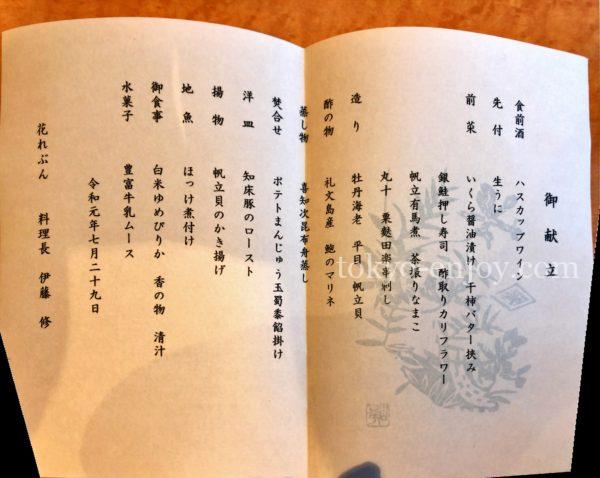 御献立
食前酒　ハスカップワイン
先付　生うに
前菜　いくら醤油漬け　干柿バター挟み
銀鮭押し寿司　酢取りカリフラワー
帆立有馬煮　茶振りなまこ
丸十　栗麩田楽串刺し
造り　牡丹海老　平目　帆立貝
酢の物　礼文島産　鮑のマリネ
蒸し物　喜知次昆布舟蒸し
焚合せ　ポテトまんじゅう玉蜀黍餡掛け
洋皿　知床豚のロースト
揚物　帆立貝のかき揚げ
地魚　ほっけ煮付け
御食事　白米ゆめぴりか　香の物　清汁
水菓子　豊富牛乳ムース
令和元年七月二十九日
花れぶん　料理長　伊藤　修
tokyo-enjoy.com